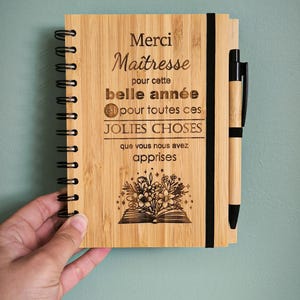 Merci
Maîtresse
pour cette
belle année
et pour toutes ces
JOLIES CHOSES
que vous nous avez
apprises